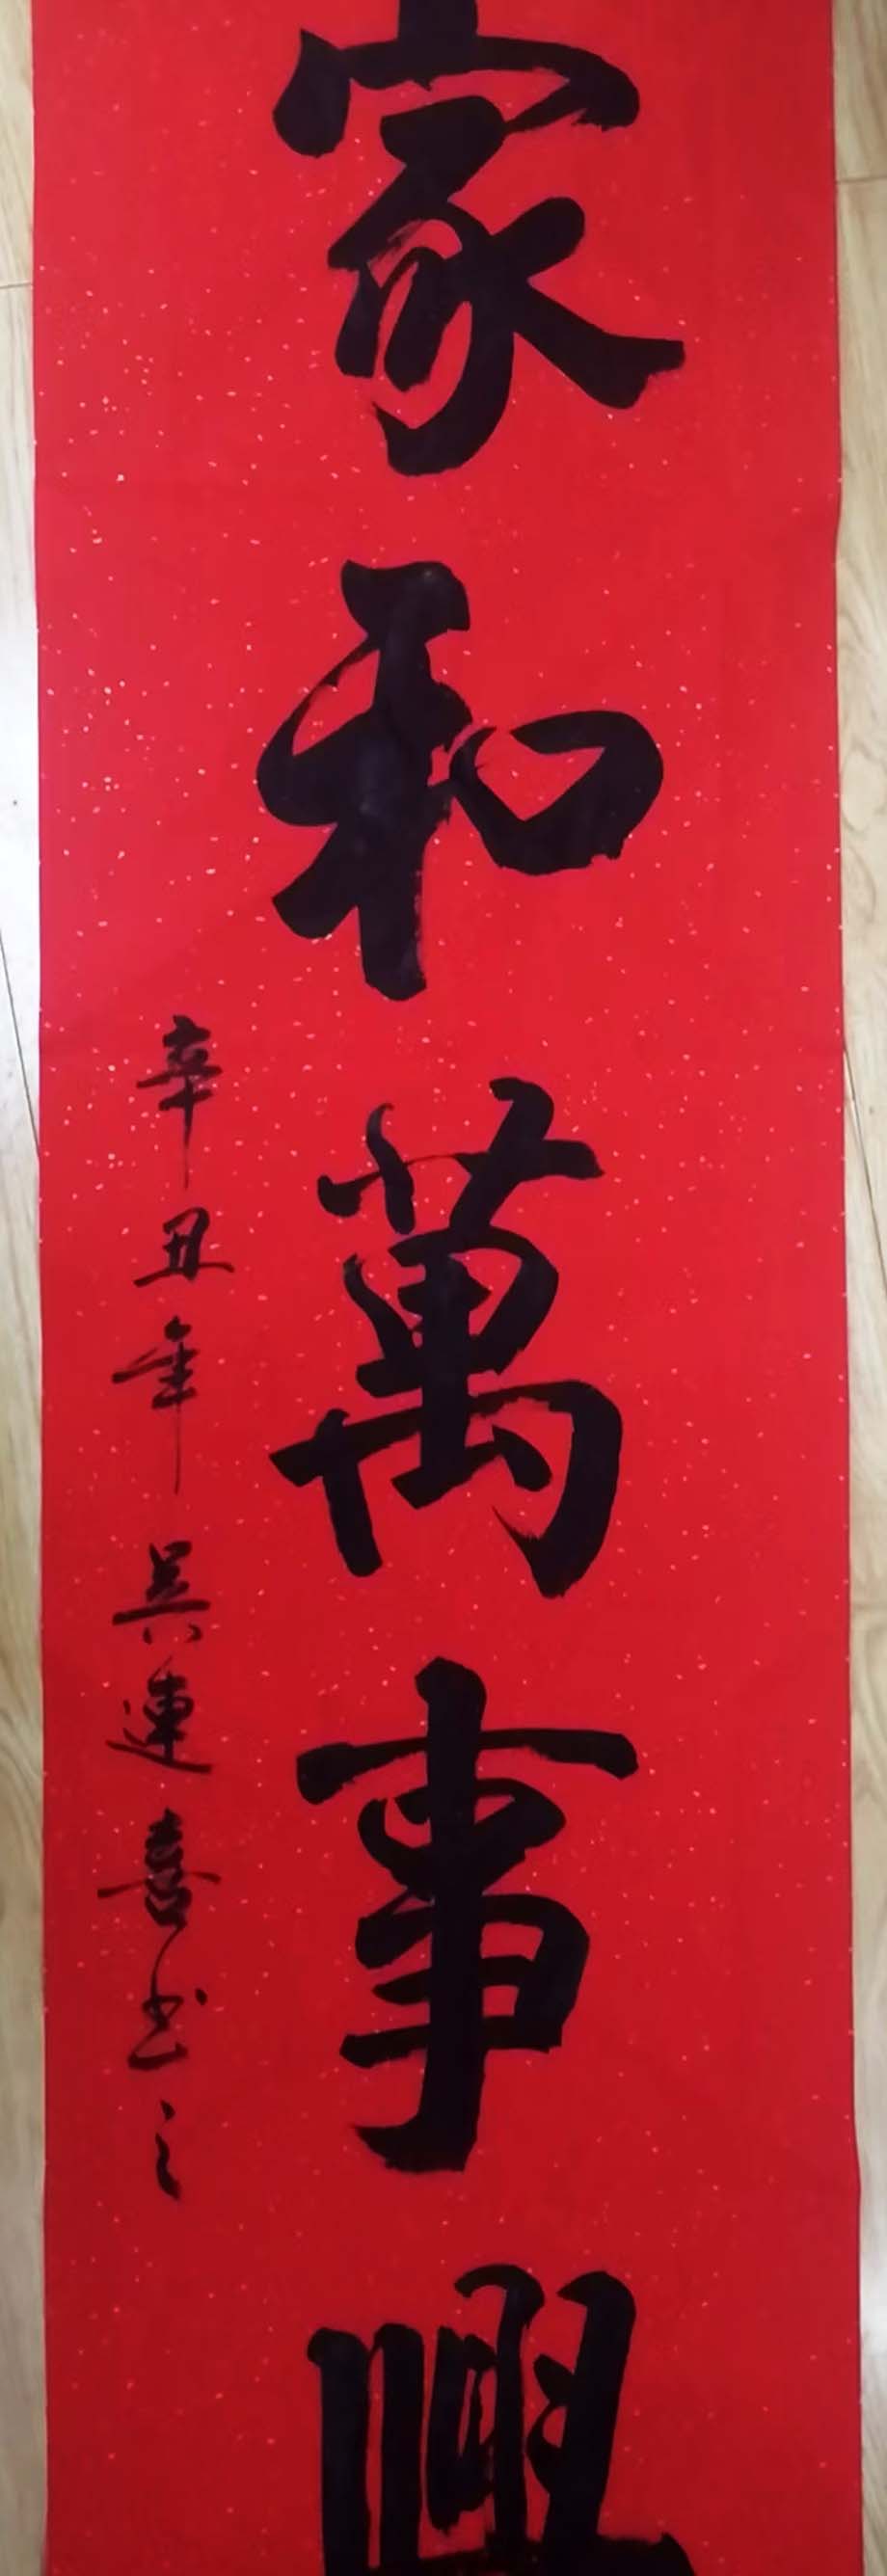 家和萬事興
辛丑年吴連喜书之